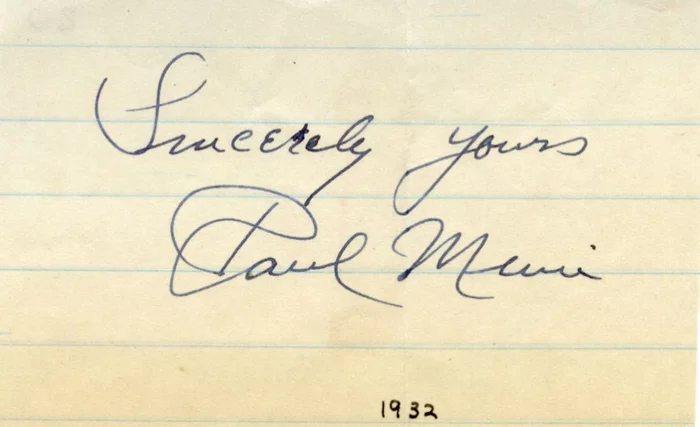 Sincerely Yours
Paul Muni
1932